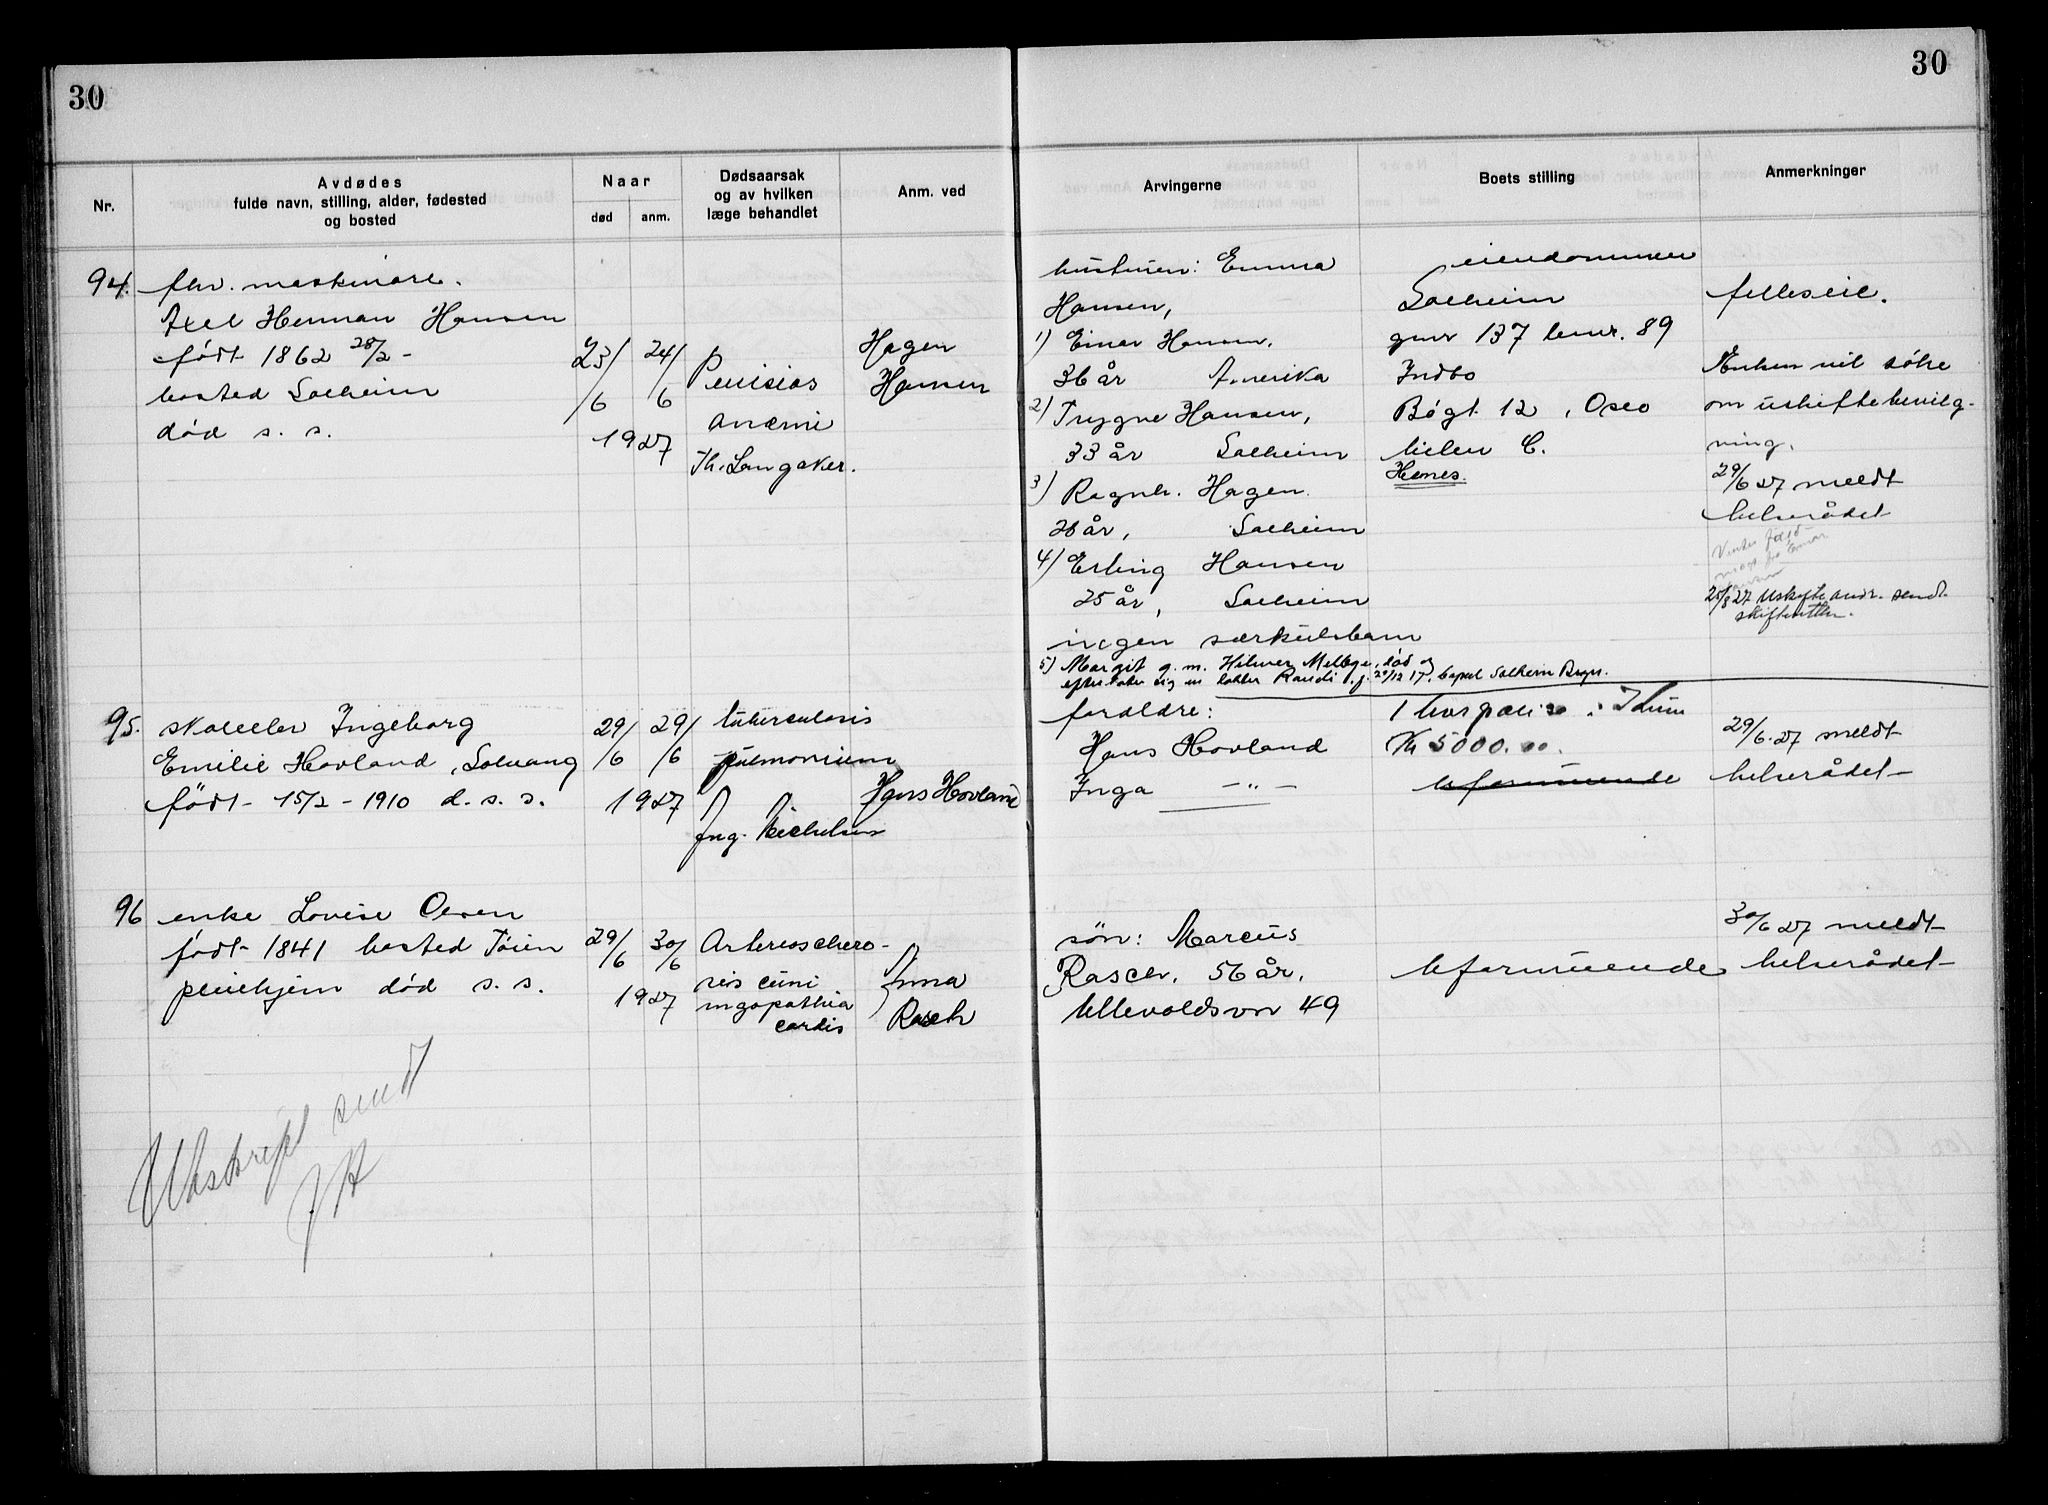 30
30
Nr.
Avdødes
fulde navn, stilling, alder, fødested
og bosted
Naar
død
anm.
Dødsaarsak
og av hvilken
læge behandlet
Anm. ved
Arvingerne
Boets stilling
Anmerkninger
94.
fhv. maskinare.
Axel Herman Hansen
født 1862 28/2 -
bosted Solheim
død s. s.
23/6 24/6
1927
Pernisiøs
anæmi
Th. Langaker.
Hagen
Hansen
hustruen: Emma
Hansen,
1) Einar Hansen,
36 år Amerika
2) Trygve Hansen,
33 år Solheim
3) Ragnh. Hagen.
28 år, Solheim
4) Erling Hansen
25 år, Solheim
ingen særkulsbarn
5) Margit g. m. Hilmer død og
efterlater sig en datter Randi f. 20/12 17. Solheim Bryn.
eiendommen
Solheim
gnr 137 bnr. 89
Indbo
Bøgt. 12, Oslo
bilen C.
felleseie.
Enken vil søke
om uskiftebevilg-
ning.
29/6 27 meldt
helserådet
25/8 27 Uskifteandr. sendt
skifteretten.
95.
skoleelev Ingeborg
Emilie Hovland, Solvang
født 15/2 - 1910 d. s. s.
29/6 29/6
1927
tuberculosis
pulmonium
Hans Hovland
foreldre:
Hans Hovland
Inga — " —
Kr 5000.00.
uformuende
29/6.27 meldt
helserådet
96
enke Lovise Olsen
født 1841 bosted Tøien
pleiehjem død s. s.
29/6 30/6
1927
Arterioschero-
sis cum
myopathia
cordis
Anna
Rasch
søn: Marcus
56 år,
Ullevoldsvn 49
Uformuende
30/6 27 meldt
helserådet
Utskrift sendt